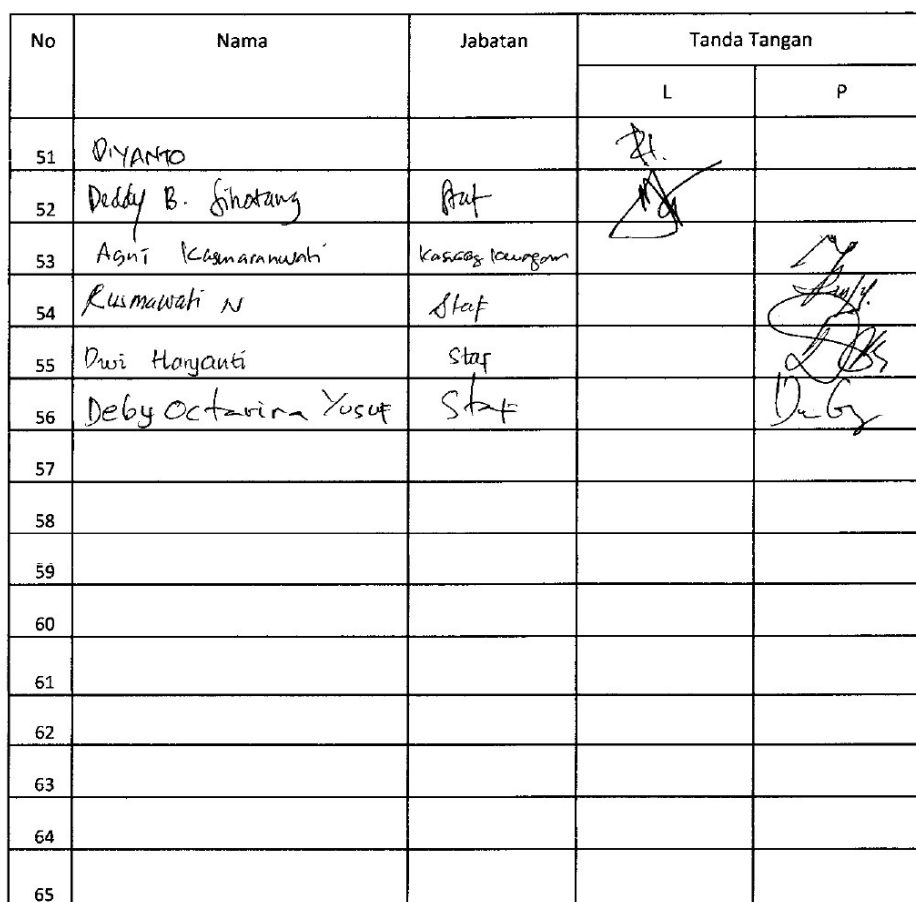 No Nama Jabatan Tanda Tangan
L P
51 DIYANTO
52 Deddy B. Sihotang Staf
53 Agni Kasmaranwati
54 Rusmawati N Staf
55 Dwi Haryanti Staf
56 Deby Octavina Yusuf Staf
57
58
59
60
61
62
63
64
65